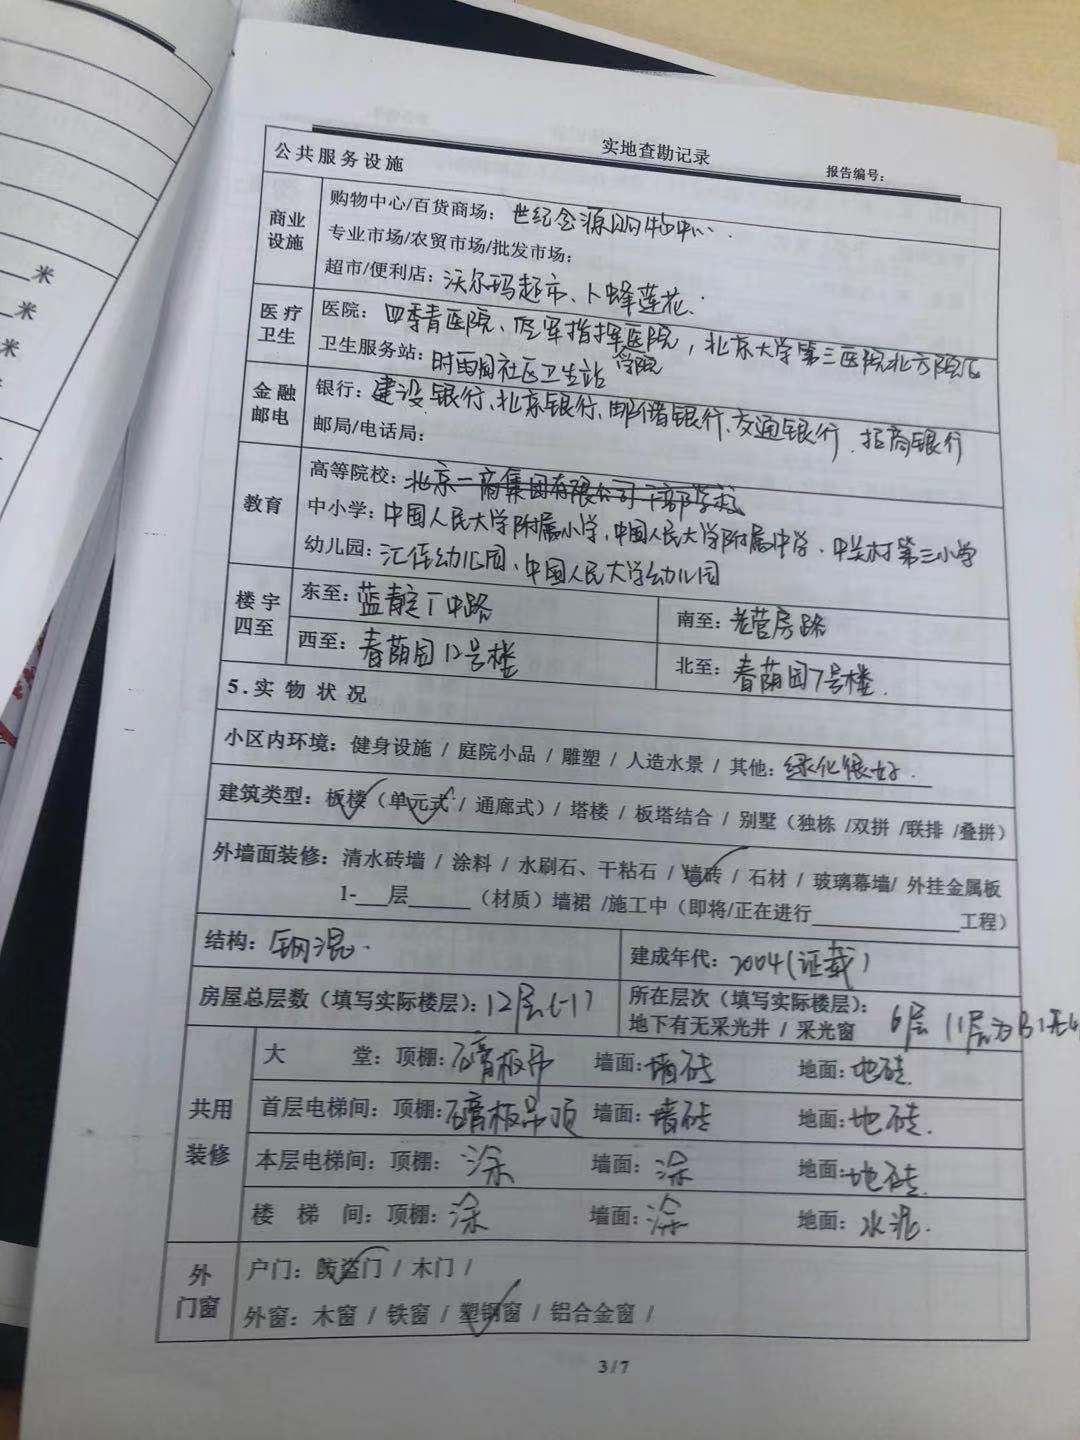 实地查勘记录
报告编号:
公共服务设施
商业设施
购物中心/百货商场: 世纪金源购物中心.
专业市场/农贸市场/批发市场:
超市/便利店: 沃尔玛超市、卜蜂莲花.
医疗卫生
医院: 四季青医院、空军指挥学院医院, 北京大学第三医院北方院区
卫生服务站: 时雨园社区卫生站
金融邮电
银行: 建设银行、北京银行、邮储银行、交通银行、招商银行
邮局/电话局:
教育
高等院校: 北京一商集团有限公司干部学校
中小学: 中国人民大学附属小学、中国人民大学附属中学、中关村第三小学
幼儿园: 汇佳幼儿园、中国人民大学幼儿园
楼宇四至
东至: 蓝靛厂中路
南至: 老营房路
西至: 春荫园12号楼
北至: 春荫园7号楼.
5.实 物 状 况
小区内环境: 健身设施 / 庭院小品 / 雕塑 / 人造水景 / 其他: 绿化很好.
建筑类型: 板楼 (单元式 / 通廊式) / 塔楼 / 板塔结合 / 别墅 (独栋 /双拼 /联排 /叠拼)
外墙面装修: 清水砖墙 / 涂料 / 水刷石、干粘石 / 墙砖 / 石材 / 玻璃幕墙/ 外挂金属板
1-___层______ (材质) 墙裙 /施工中 (即将/正在进行______________工程)
结构: 钢混.
建成年代: 2004(证载)
房屋总层数 (填写实际楼层): 12层(-1)
所在层次 (填写实际楼层):
地下有无采光井 / 采光窗
6层 (1层为B1无4
共用装修
大 堂: 顶棚: 石膏板吊 墙面: 墙砖 地面: 地砖.
首层电梯间: 顶棚: 石膏板吊顶 墙面: 墙砖 地面: 地砖.
本层电梯间: 顶棚: 涂 墙面: 涂 地面: 地砖.
楼 梯 间: 顶棚: 涂 墙面: 涂 地面: 水泥.
外门窗
户门: 防盗门 / 木门 /
外窗: 木窗 / 铁窗 / 塑钢窗 / 铝合金窗 /
3/7
米
米
米